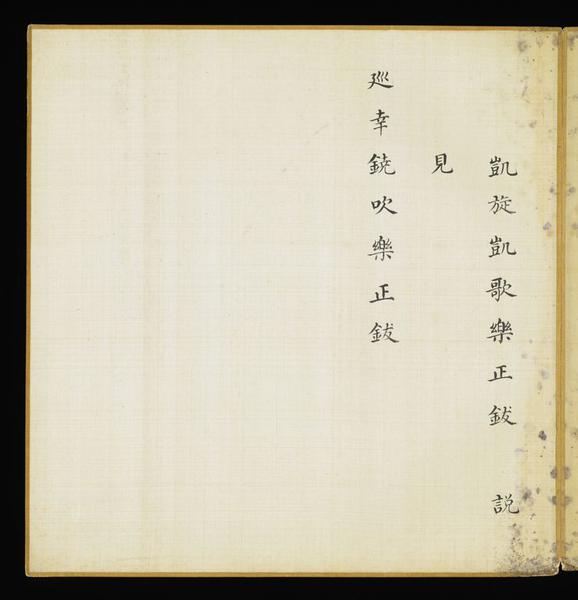 凱旋凱歌樂正鈸 説
見
廵幸鐃吹樂正鈸